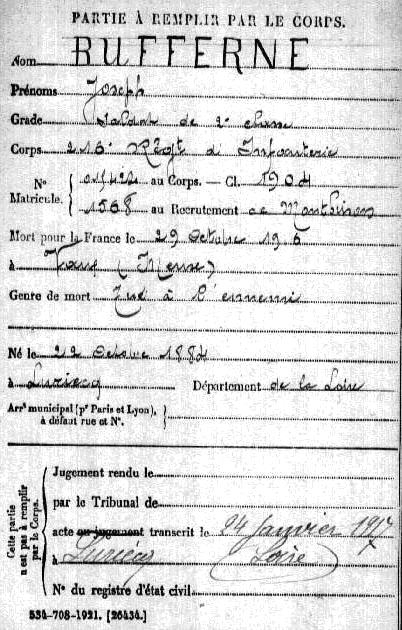 PARTIE À REMPLIR PAR LE CORPS.
Nom BUFFERNE
Prénoms Joseph
Grade Soldat de 2e classe
Corps 216e Régt d'Infanterie
N° 011422 au Corps. — Cl. 1904
Matricule. 1568 au Recrutement de Montbrison
Mort pour la France le 29 octobre 1916
à Vaux (Meuse)
Genre de mort Tué à l'ennemi
Né le 22 octobre 1884
à Luriecq Département de la Loire
Arrt municipal (pr Paris et Lyon),
à défaut rue et N°.
Cette partie
n'est pas à remplir
par le Corps.
Jugement rendu le
par le Tribunal de
acte ou jugement transcrit le 24 Janvier 1917
à Luriecq Loire
N° du registre d'état civil
534-708-1921. [26434.]